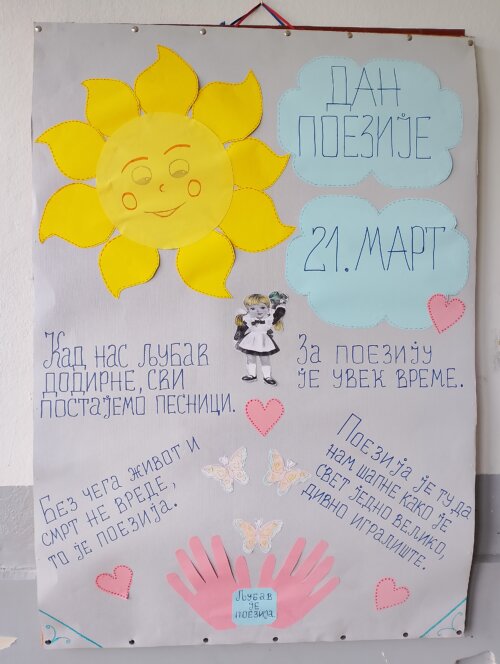 ДАН
ПОЕЗИЈЕ
21. МАРТ
Кад нас љубав
додирне, сви
постајемо песници.
За поезију
је увек време.
Без чега живот и
смрт не вреде,
то је поезија.
Поезија је ту да
нам шапне како је
свет једно велико,
дивно игралиште.
Љубав
је
поезија.